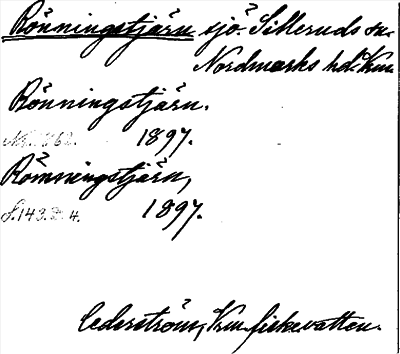 Rönningstjärn sjö. Silleruds sn.
Nordmarks hd. Krm.
Rönningstjärn.
1897.
Römningstjärn,
S. 143. 1897.
Cederström, Krm. fiskevatten.